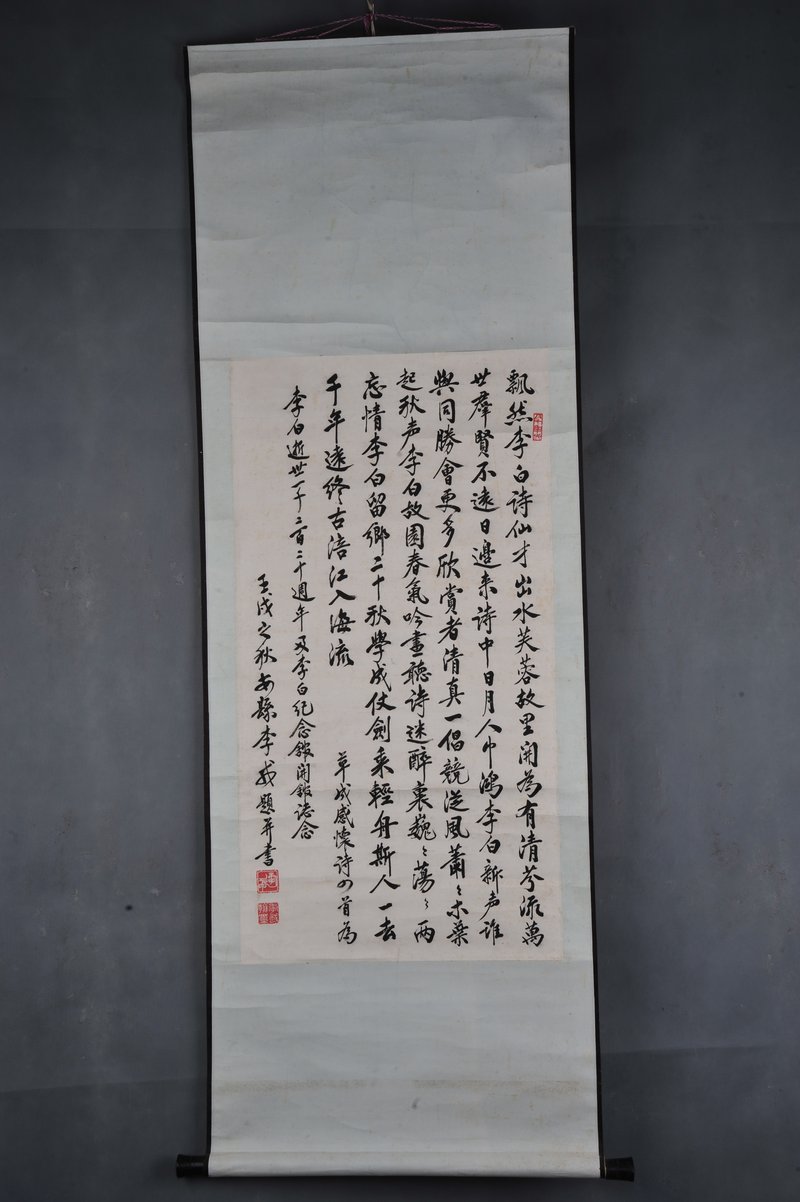 飄然李白詩仙才出水芙蓉故里開為有清芬流萬
世群賢不遠日邊来詩中日月人中鴻李白新声誰
與同勝會更多欣賞者清真一倡競從風蕭〻木葉
起秋声李白故園春氣吟畫聽詩迷醉裏巍〻蕩〻两
忘情李白留鄉二十秋學成仗劍乘輕舟斯人一去
千年遠終古涪江入海流
草成感懷詩四首為
李白逝世一千二百二十週年及李白紀念館開館誌念
壬戌之秋安縣李成題并書